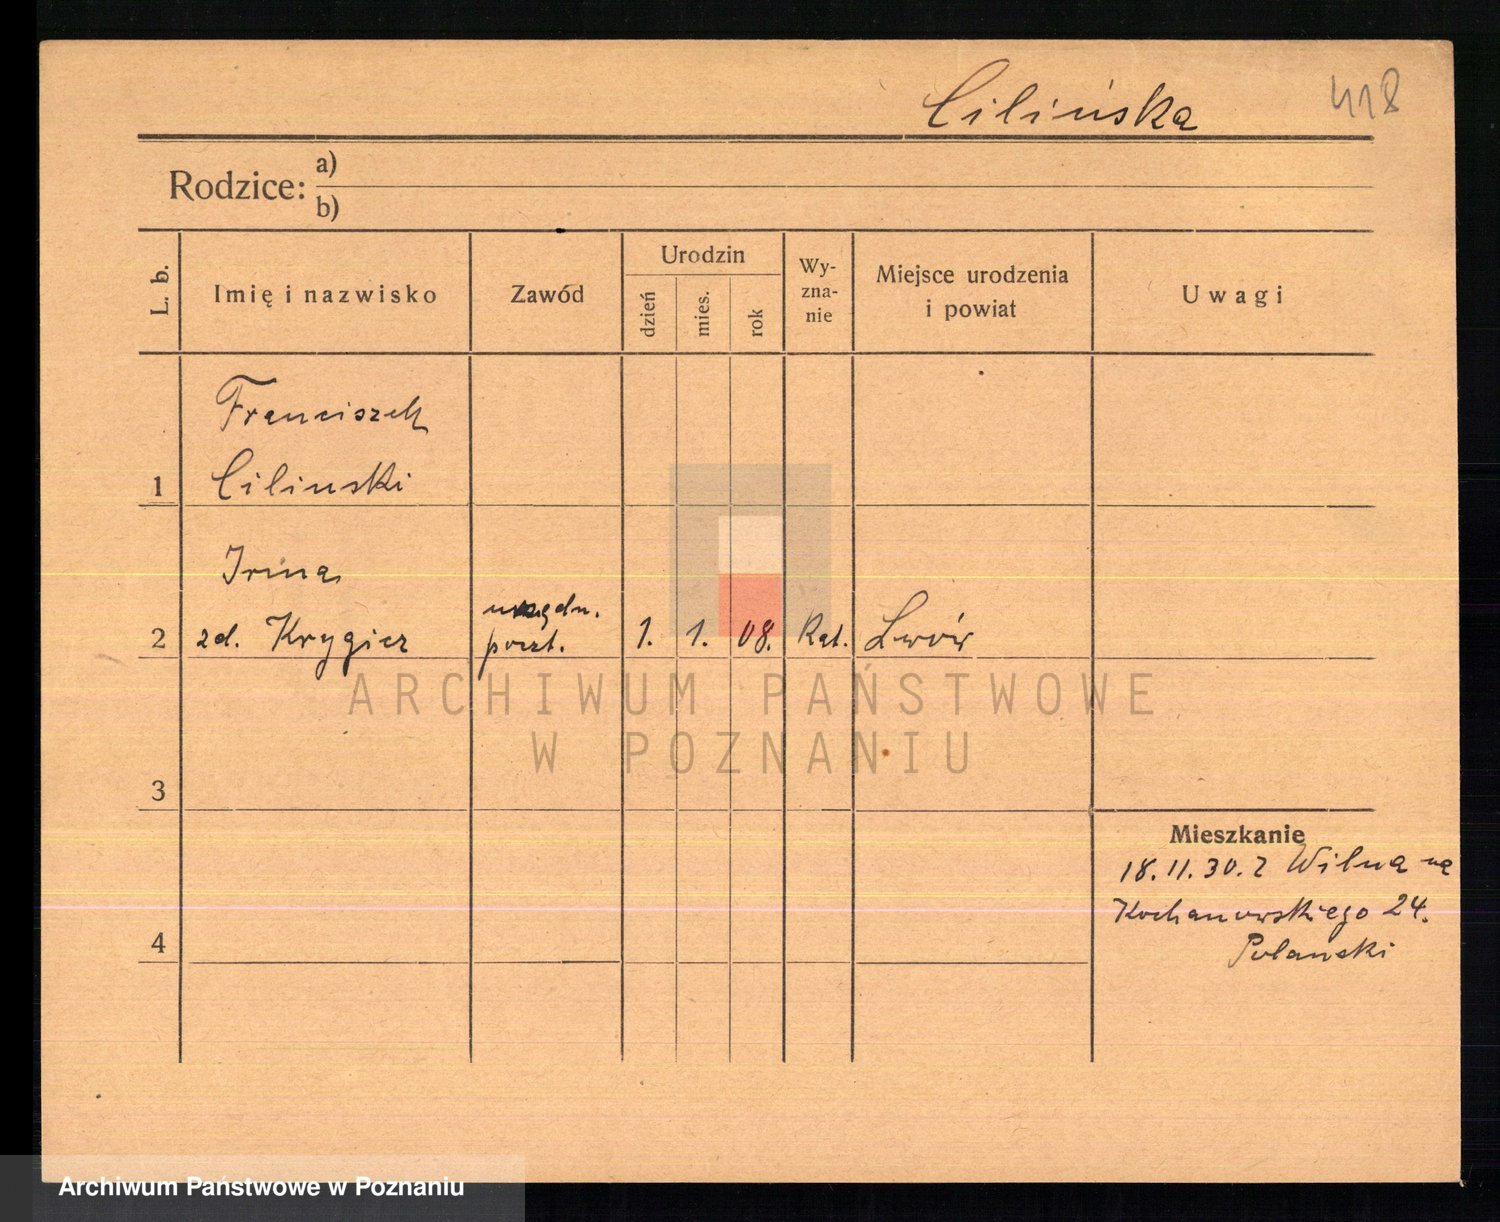 Cilińska
418
Rodzice: a)
b)
L. b.
Imię i nazwisko
Zawód
Urodzin
dzień
mies.
rok
Wy-
zna-
nie
Miejsce urodzenia
i powiat
Uwagi
Franciszek
1 Cilinski
Irina
2 zd. Krygier
urzędn.
poczt.
1. 1. 08. Kat. Lwów
ARCHIWUM PAŃSTWOWE
W POZNANIU
3
Mieszkanie
18.11.30. z Wilna na
Kochanowskiego 24.
4
Archiwum Państwowe w Poznaniu